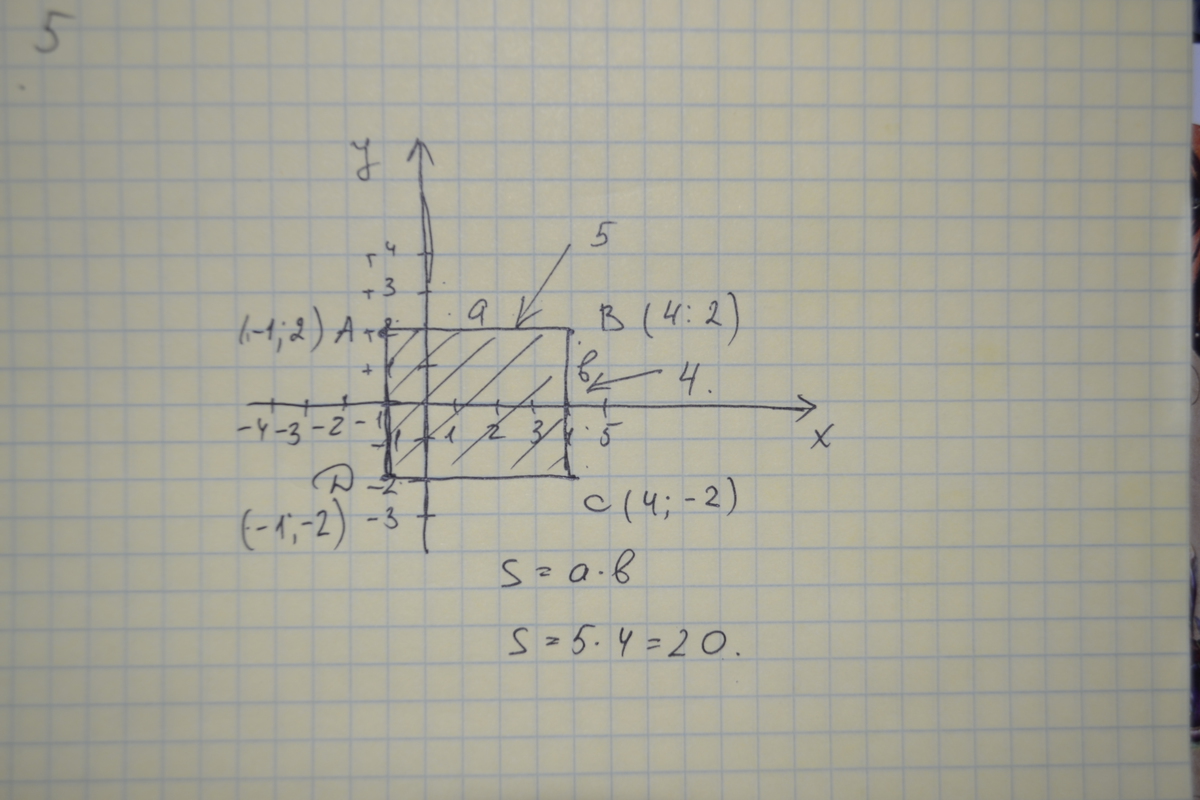 5
y
4
5
3
a
(-1;2) A 2 B (4:2)
1 b
4.
-4 -3 -2 -1 1 2 3 4 5 x
-1
D -2 C (4; -2)
(-1;-2) -3
S = a · b
S = 5 · 4 = 20.